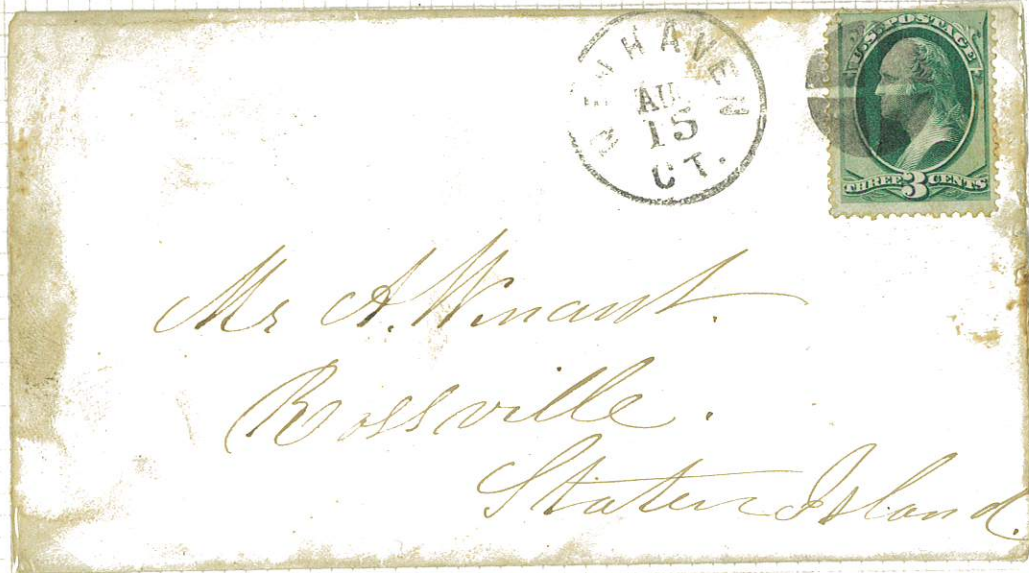 NEW HAVEN
AUG
15
CT.
U.S. POSTAGE
THREE 3 CENTS
Mr A. Winant.
Rossville.
Staten Island.